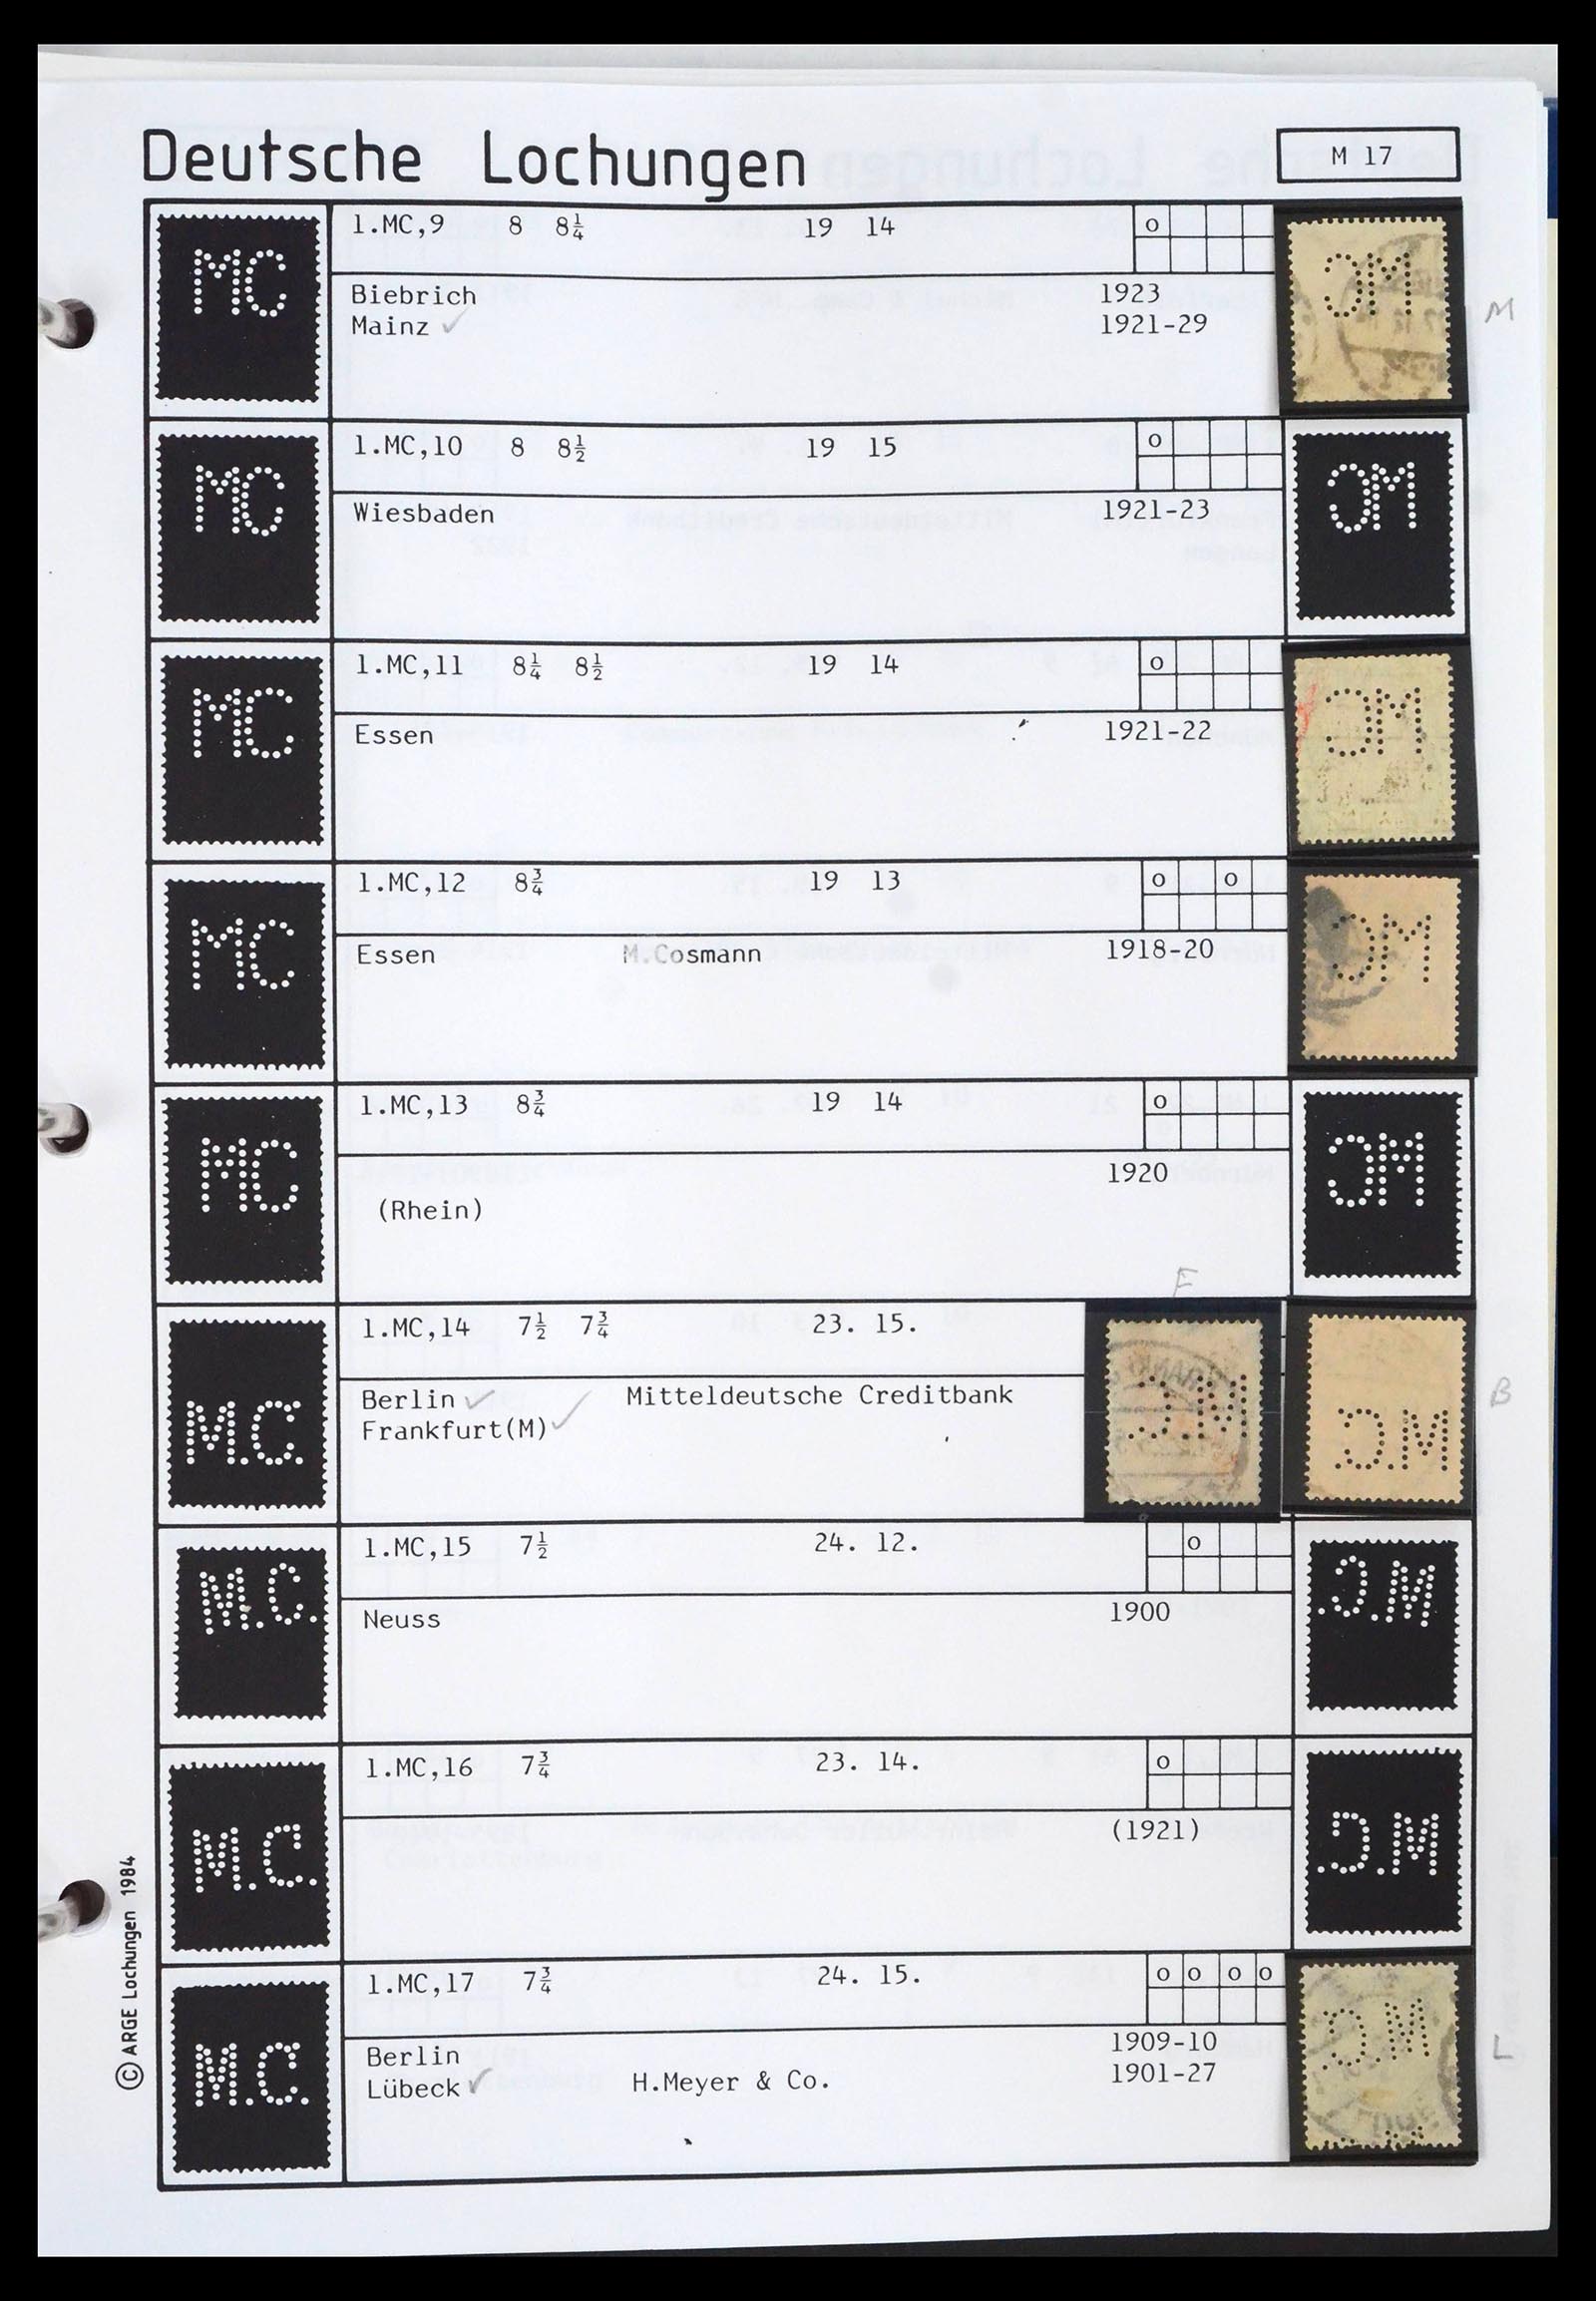 Deutsche Lochungen
M 17
MC
1.MC,9 8 8¼ 19 14 o
Biebrich 1923
Mainz ✓ 1921-29
M
MC
1.MC,10 8 8½ 19 15 o
Wiesbaden 1921-23
MC
1.MC,11 8¼ 8½ 19 14 o
Essen 1921-22
MC
1.MC,12 8¾ 19 13 o o
Essen M.Cosmann 1918-20
MC
1.MC,13 8¾ 19 14 o
1920
(Rhein)
F
M.C.
1.MC,14 7½ 7¾ 23. 15.
Berlin ✓ Mitteldeutsche Creditbank
Frankfurt(M) ✓
B
M.C.
1.MC,15 7½ 24. 12. o
Neuss 1900
M.C.
1.MC,16 7¾ 23. 14. o
(1921)
M.C.
1.MC,17 7¾ 24. 15. o o o o
Berlin 1909-10
Lübeck ✓ H.Meyer & Co. 1901-27
L
© ARGE Lochungen 1984